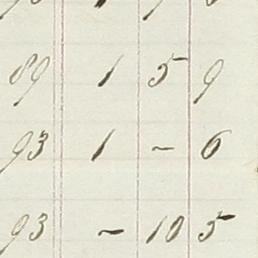 89 1 5 9
93 1 - 6
93 - 10 5